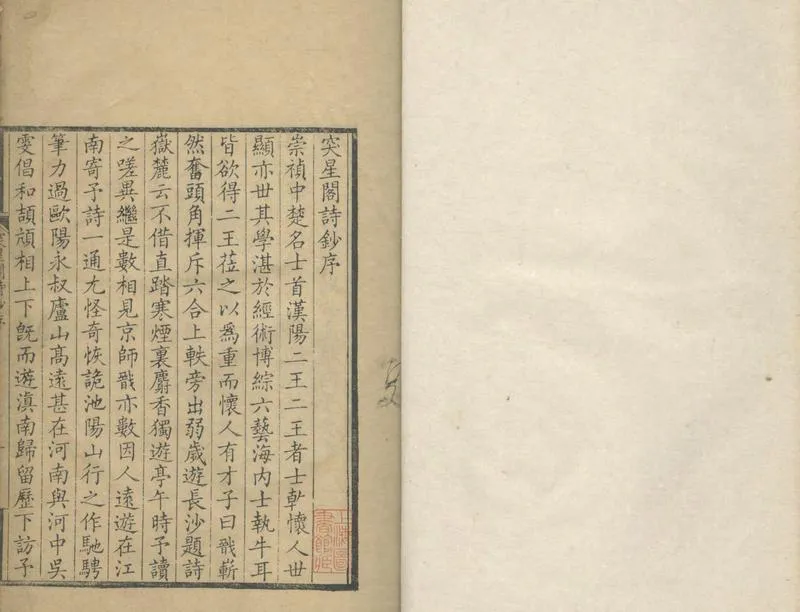 突星閣詩鈔序
崇禎中楚名士首漢陽二王二王者士乾懷人世
顯亦世其學湛於經術博綜六藝海内士執牛耳
皆欲得二王莅之以爲重而懷人有才子曰戩嶄
然奮頭角揮斥六合上軼旁出弱歲遊長沙題詩
嶽麓云不借直踏寒煙裏麝香獨遊亭午時予讀
之嗟異繼是數相見京師戩亦數因人遠遊在江
南寄予詩一通尤怪奇恢詭池陽山行之作馳騁
筆力過歐陽永叔廬山髙遠甚在河南與河中吳
雯倡和頡頏相上下既而遊滇南歸留歷下訪予
上海圖
書館藏